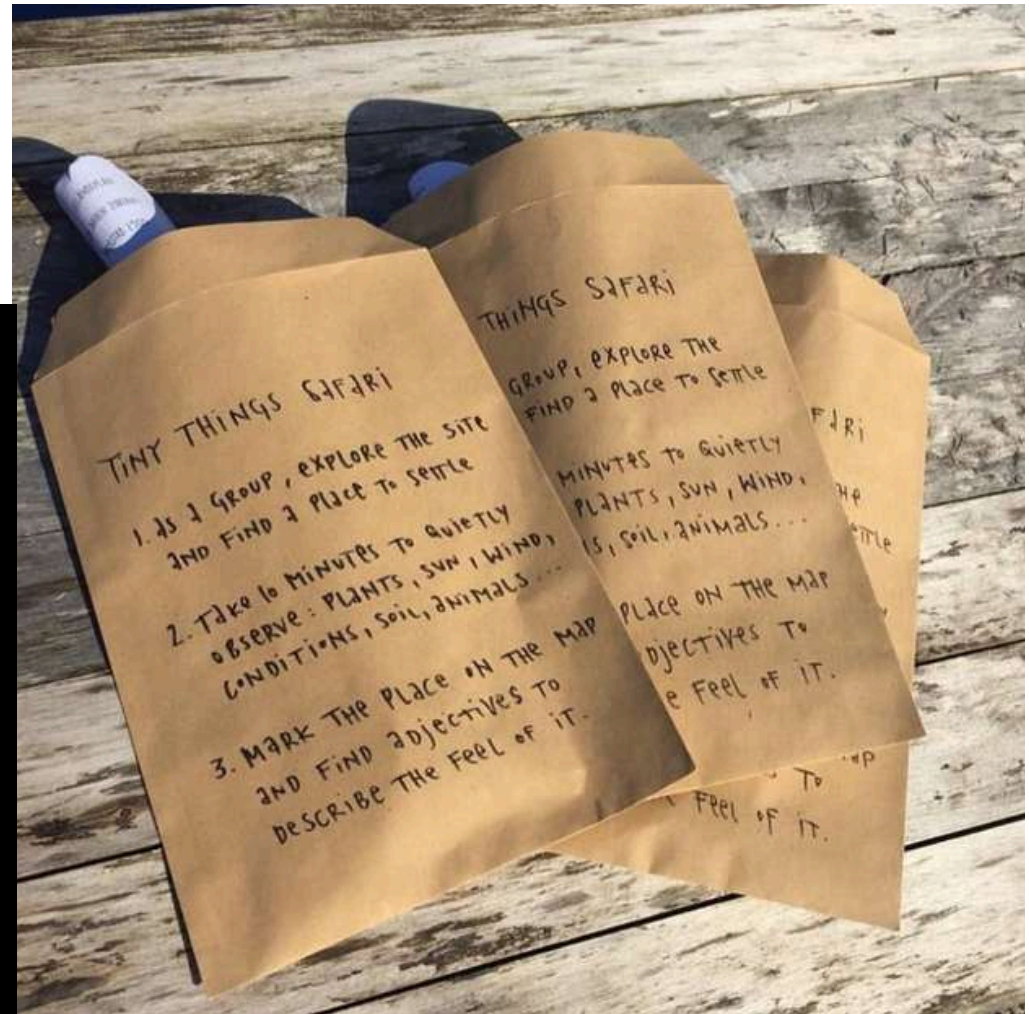 TiNY THiNGS SaFaRi
1. as a GROUP, eXPLORE THE SiTE
aND FiND a PLace To SeTTLe
2. Take 10 MiNUTes To QUieTLY
OBSERVE: PLaNTS, SUN, WiND,
CONDiTiONS, SoiL, aNiMaLS...
3. MaRK THE PLace ON THE MaP
aND FiND aDJeCTiVeS To
DeSCRiBe THE FeeL oF iT.
THiNGS SaFaRi
GROUP, eXPLORe THE
FiND a PLace To SeTTLe
MiNUTes To QUieTLY
PLaNTS, SUN, WiND,
S, SoiL, aNiMaLS...
PLace ON THE MaP
DJeCTiVeS To
e FeeL oF iT.
FaRi
He
eTTLe
To
FeeL oF iT.